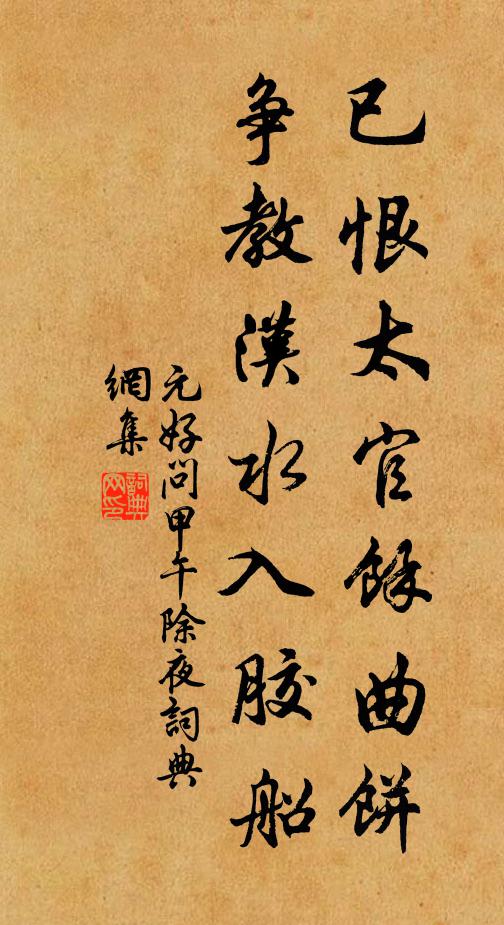 已恨太官餘曲餅
争教漢水入胶船
元好问甲午除夜詞典
網集
詞典
网印